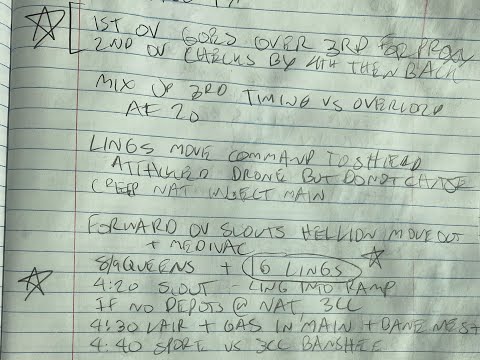 1ST OV GOES OVER 3RD FOR PROXY
2ND OV CHECKS BY 4TH THEN BACK
MIX UP 3RD TIMING VS OVERLORD
AT 20
LINGS MOVE COMMAND TO SHIELD
ATTACKED DRONE BUT DO NOT CHASE
CREEP NAT INJECT MAIN
FORWARD OV SCOUTS HELLION MOVE OUT
+ MEDIVAC
8/9 QUEENS + 6 LINGS
4:20 SCOUT - LING INTO RAMP
IF NO DEPOTS @ NAT, 3CC
4:30 LAIR + GAS IN MAIN + BANE NEST
4:40 SPORE VS 3CC BANSHEE